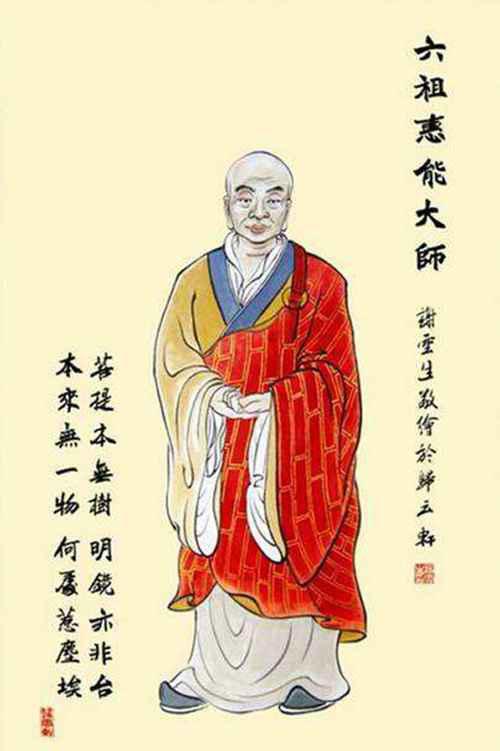 六祖惠能大師
謝雲生敬繪於歸云軒
菩提本無樹 明鏡亦非台
本來無一物 何處惹塵埃